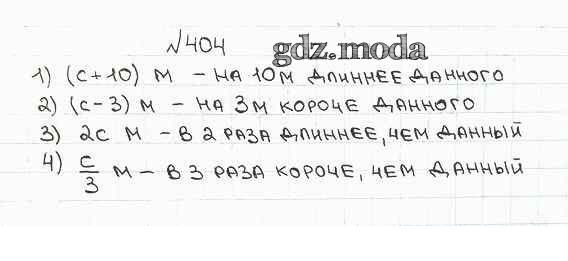 №404
gdz.moda
1) (c+10) м – на 10м длиннее данного
2) (c-3) м – на 3м короче данного
3) 2c м – в 2 раза длиннее, чем данный
4) c/3 м – в 3 раза короче, чем данный